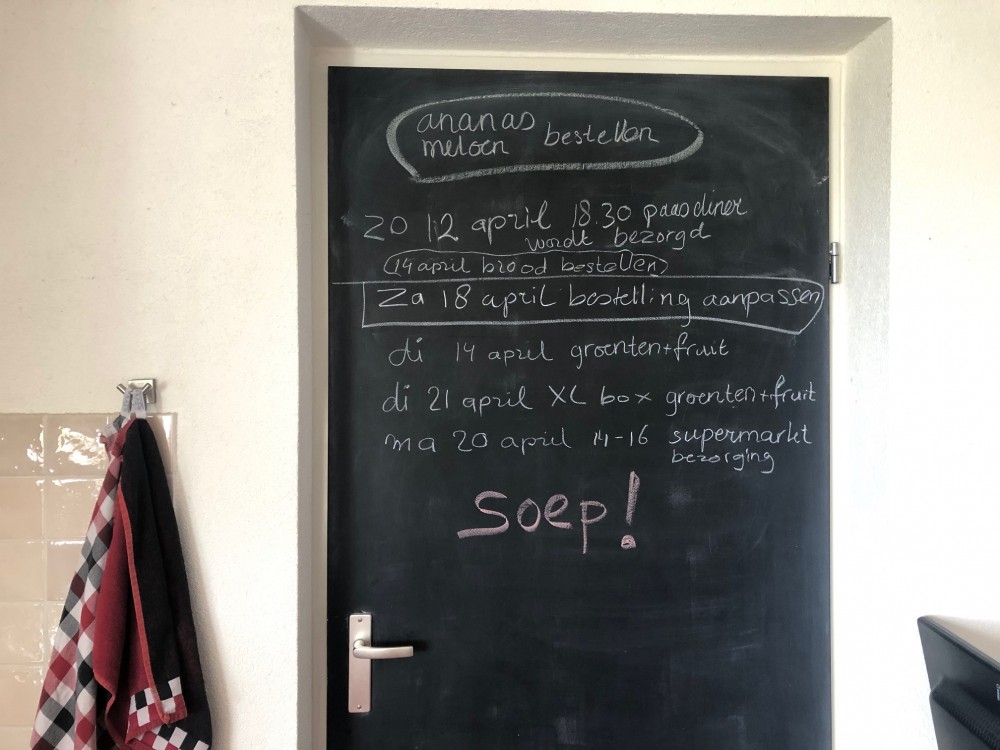 ananas
meloen bestellen
zo 12 april 18.30 paasdiner
wordt bezorgd
14 april brood bestellen
Za 18 april bestelling aanpassen
di 14 april groenten+fruit
di 21 april XL box groenten+fruit
ma 20 april 14-16 supermarkt
bezorging
soep!